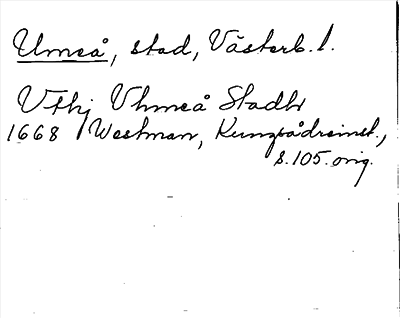 Umeå, stad, Västerb. l.
Vthj Vhmeå Stadh
1668 Westman, Kungsådreinst.,
s. 105. orig.